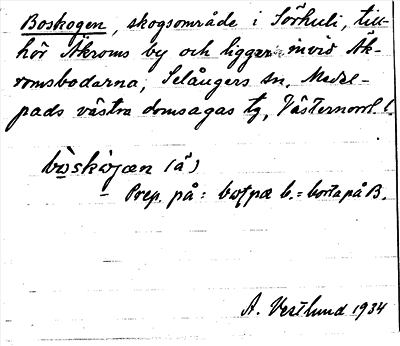 Boskogen, skogsområde i Sörhuli, till-
hör Åkroms by och ligger invid Åk-
romsbodarna, Selångers sn, Medel-
pads västra domsagas tg, Västernorrl. l.
bòskòjæn (å)
Prep. på: bo̧ʈpæ b. = borta på B.
A. Vestlund 1934